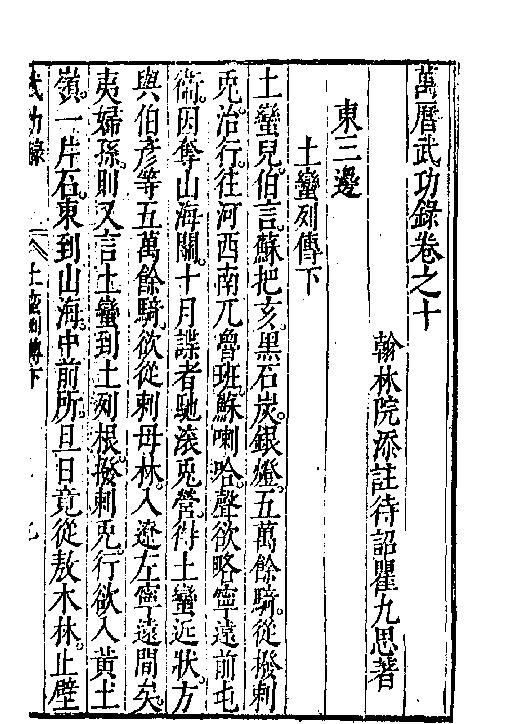 萬曆武功錄卷之十
翰林院添註待詔瞿九思著
東三邊
土蠻列傳下
土蠻兒伯言蘇把亥黑石炭銀燈五萬餘騎從撥剌
兎治行往河西南兀魯班蘇喇哈聲欲略寧遠前屯
衞因奪山海關十月諜者馳滚兎營得土蠻近狀方
與伯彥等五萬餘騎欲從剌母林入遼左寧遠間矣
夷婦孫則又言土蠻到土列根撥剌兎行欲入黃土
嶺一片石東到山海中前所旦日竟從敖木林止壁
武功錄 土蠻列傳下